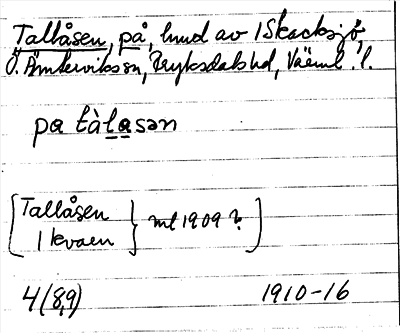 Tallåsen, på, hmd av 1 Skacksjö,
Ö. Ämterviks sn, Fryksdals hd, Värml. l.
pa tàlasən
Tallåsen
1 kvaen } ml 1909 ?
4(8,9) 1910-16